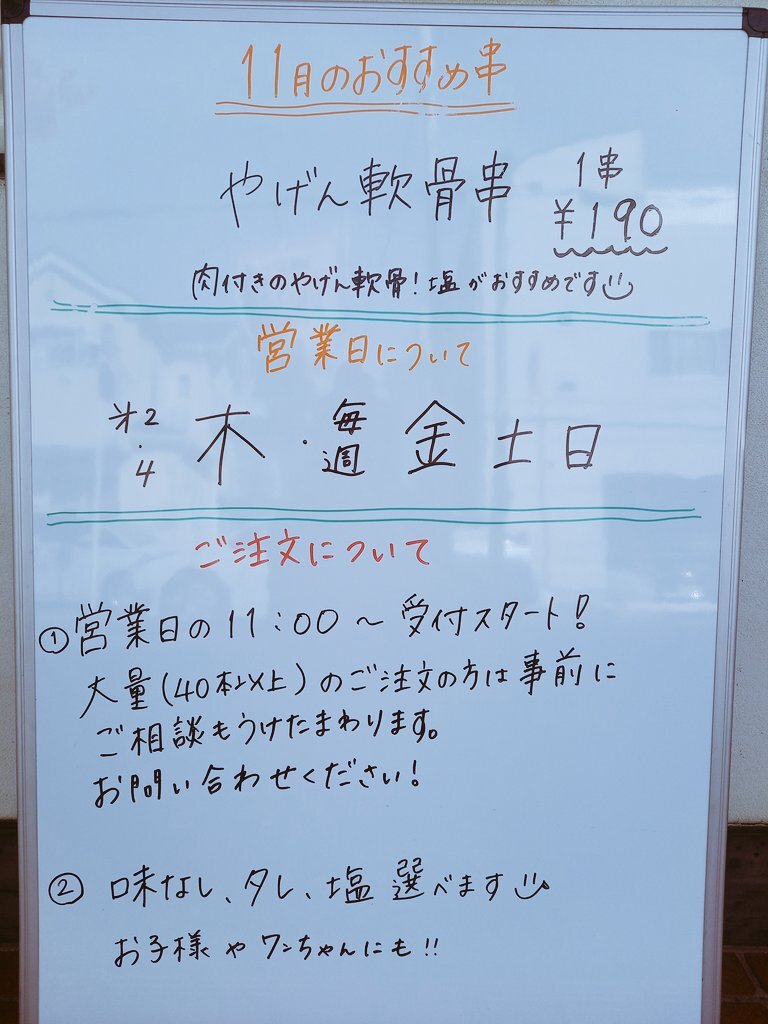 11月のおすすめ串
やげん軟骨串 1串
¥190
肉付きのやげん軟骨！塩がおすすめです
営業日について
第2・4 木・毎週 金 土 日
ご注文について
①営業日の11:00～受付スタート！
大量(40本以上)のご注文の方は事前に
ご相談もうけたまわります。
お問い合わせください！
② 味なし、タレ、塩 選べます
お子様やワンちゃんにも!!